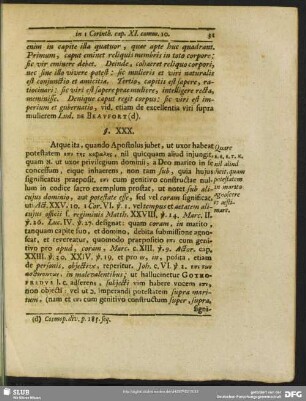 in 1 Corinth. cap. XI. comm. 10. 31
enim in capite illa quatuor, quae apte huc quadrant.
Primum, caput eminet reliquis membris in toto corpore:
sic vir eminere debet. Deinde, cohaeret reliquo corpori,
nec sine illo vivere potest: sic mulieris et viri naturalis
est conjunctio et amicitia. Tertio, capitis est sapere, ra-
tiocinari: sic viri est sapere prae muliere, intelligere recta,
meminisse. Denique caput regit corpus: sic viri est im-
perium et gubernatio, vid. etiam de excellentia viri supra
mulierem Lud. DE BEAUFORT (d)
§. XXX.
Atque ita, quando Apostolus jubet, ut uxor habeat
potestatem επι της κεφαλης, nil quicquam aliud injungit,
quam
ut uxor privilegium dominii, a Divo marito in se
concessum, ejque inhaerens, non tam sub, quam
significantis praeposit. επι cum genitivo constructae nul-
lum in codice sacro exemplum prostat, ut notet sub ali-
cujus dominio, aut potestate esse, sed vel coram significat,
ut Act. XXIV. 20. 1 Cor. VI.
vel tempus et aetatem ali-
cujus officii s. regiminis Matth. XXVIII,
14. Marc. II.
26. Luc. IV.
27. designat: quam coram, in marito,
tanquam capite suo, et domino, debita submissione agno-
scat, et revereatur, quomodo praepositio επι cum geni-
tivo pro apud, coram,
Marc. c. XIII.
9. Actor. cap.
XXIII.
30. XXIV.
19. et pro in, posita. etiam
de personis, objective, reperitur. Joh. c. VI.
2. επι των
in malevalentibus; ut hallucinetur GOTHO-
FREDUS l. c. adserens, subjecti vim habere vocem επι,
non objecti: vel ut
imperandi potestatem supra mari-
tum, (nam et επι cum genitivo constructum super, supra,
signi-
Quare
potestatem
in marito
agnoscere
et aesti-
mare.
(d) Cosmop. div. p. 285. seq.
SLUB
Wir führen Wissen.
gefördert von der
DFG
Deutschen Forschungsgemeinschaft